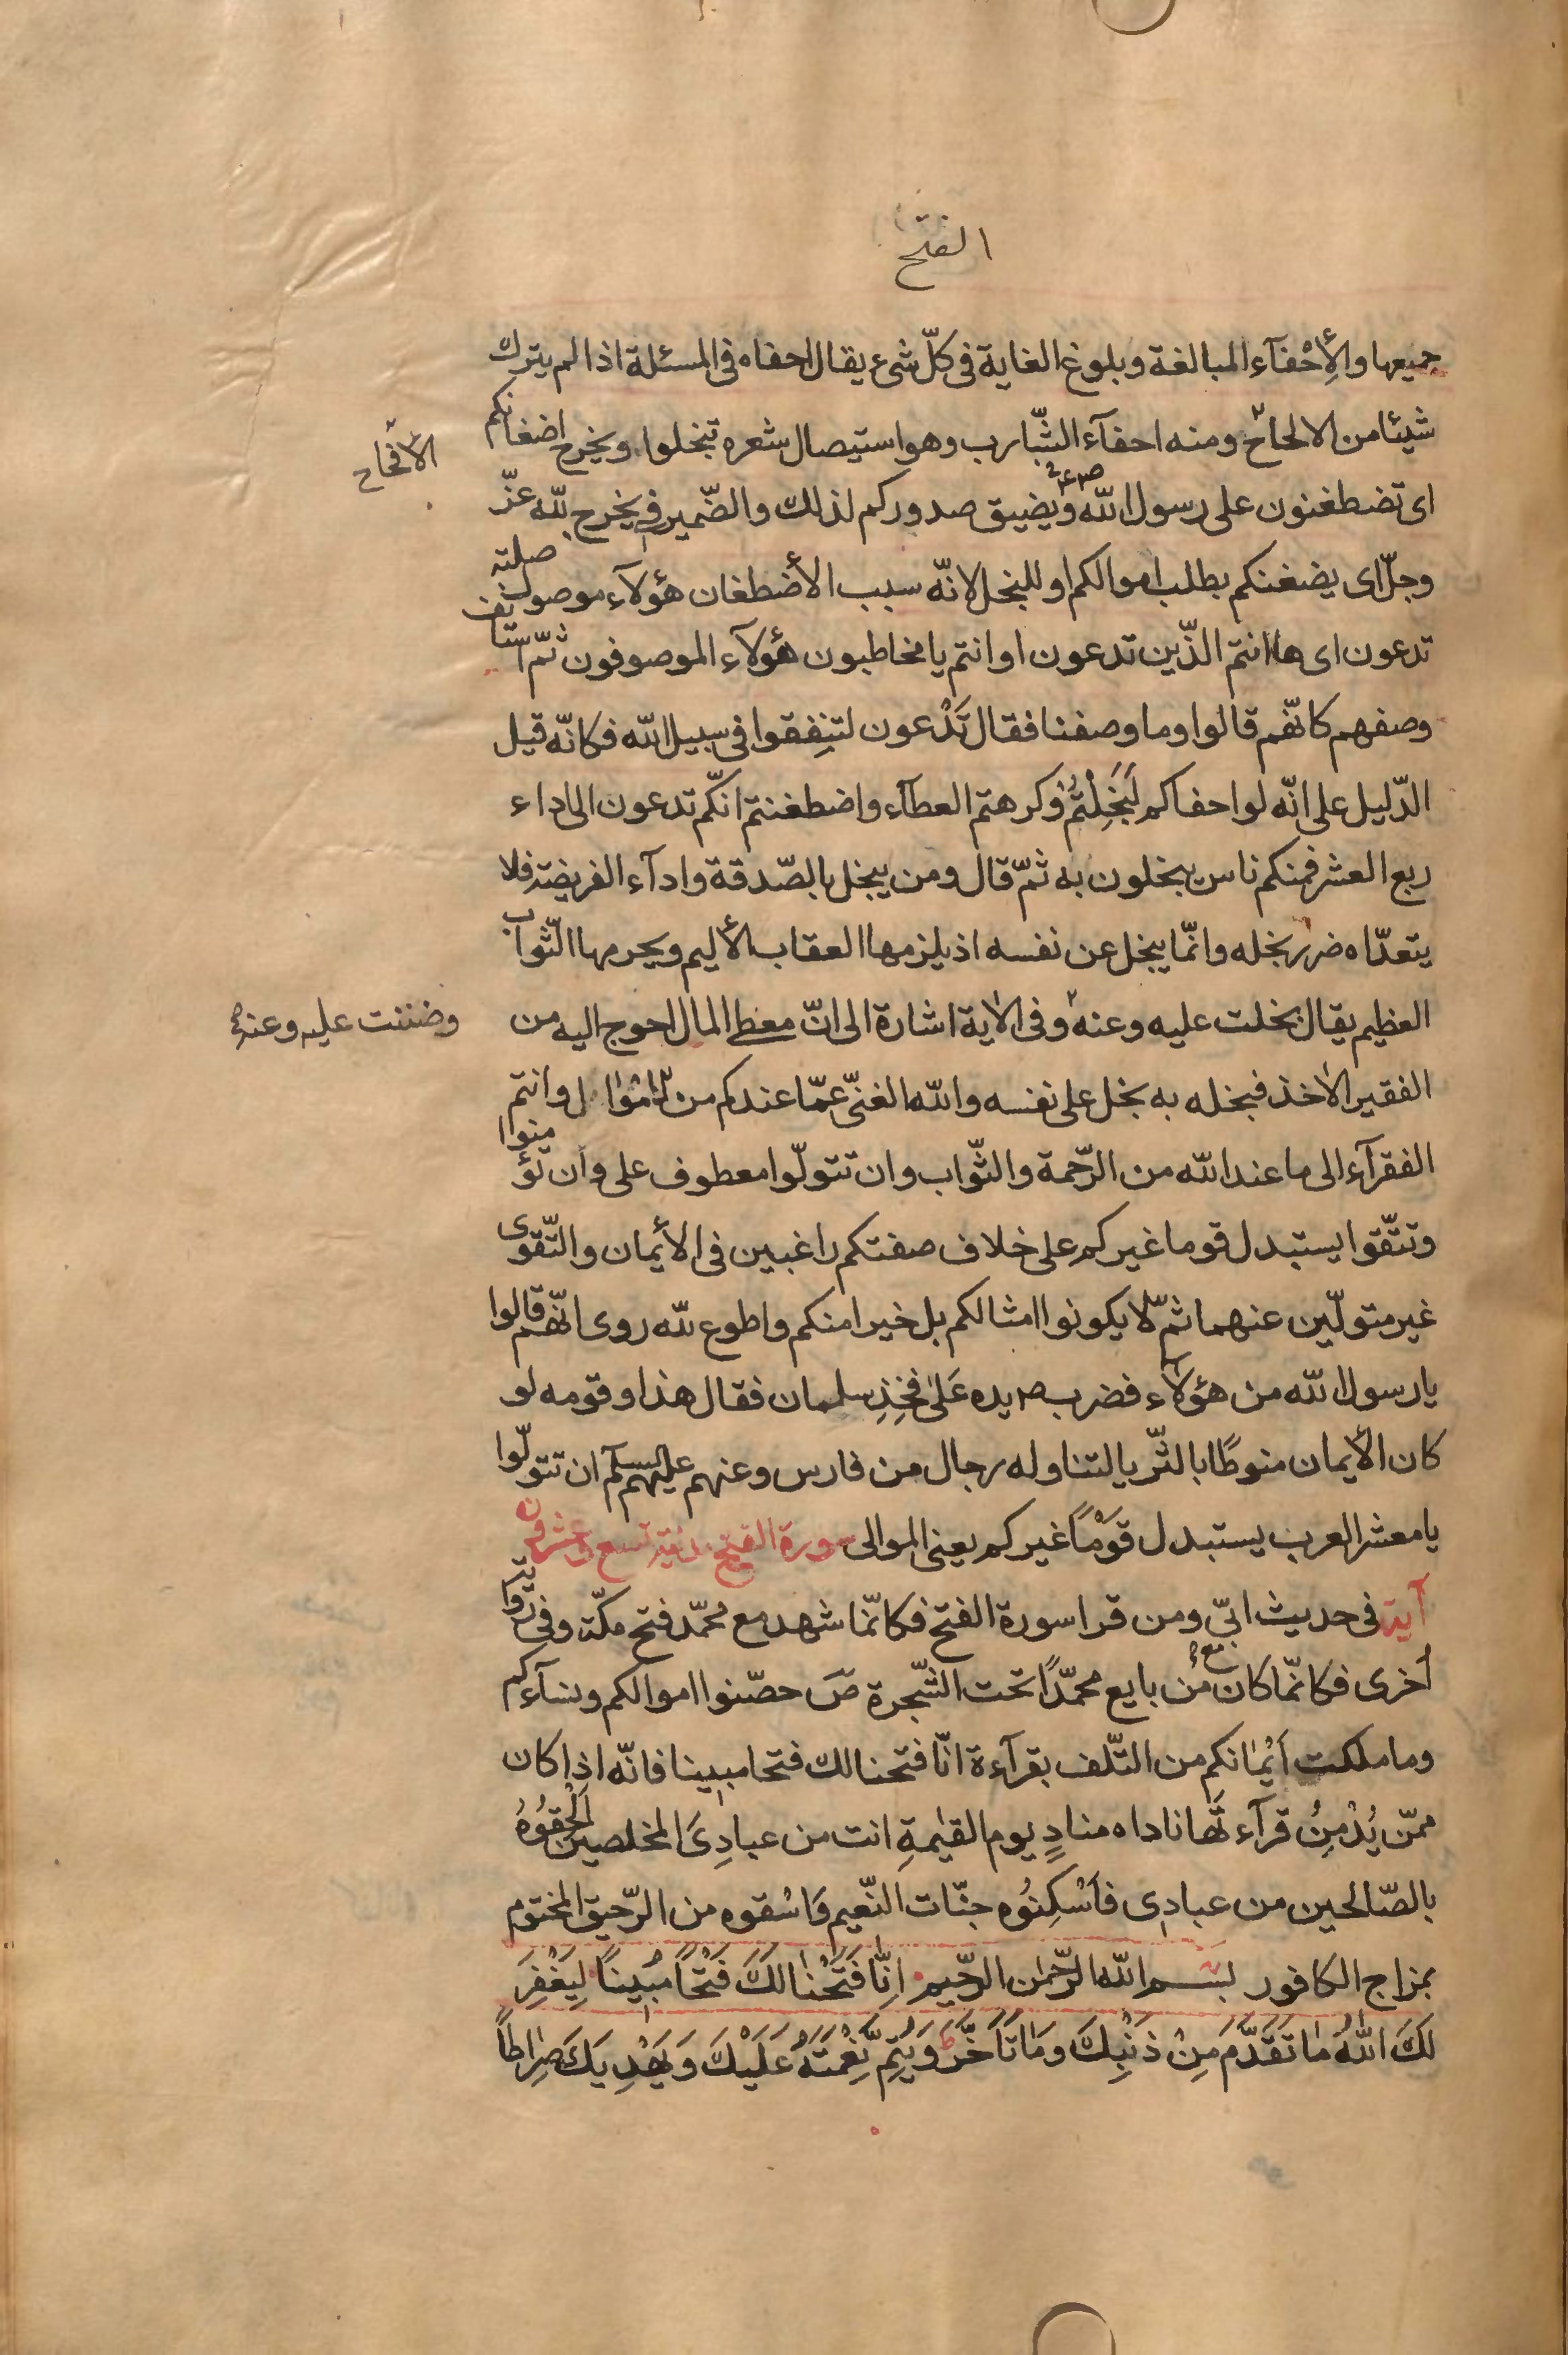 الفتح
جميعها والأِحْفآء المبالغة وبلوغ الغاية فى كلّ شىء يقال احفاه فى المسئلة اذا لم يترك
شيئا من الالحاح ومنه احفآء الشّارب وهو استيصال شعره تبخلوا ويخرج اضغانكم
الاقحاح
اى تضطغنون على رسول اللّه ويضيق صدوركم لذلك والضّمير فى يخرج للّه عزّ
وجلّ اى يضغنكم بطلب اموالكم او للبخل لانّه سبب الأضطغان هؤلآء موصول صلته
تدعون اى ها انتم الّذين تدعون او انتم يا مخاطبون هؤلآء الموصوفون ثمّ استانف
وصفهم كانّهم قالوا وما وصفنا فقال تَدْعون لتنِفقوا فى سبيل اللّه فكانّه قيل
الدّليل على انّه لو احفاكم لَبَخِلْتُمْ وكرهتم العطآء واضطغنتم انّكم تدعون الى اداء
ربع العشر فمنكم ناس يبخلون به ثمّ قال ومن يبخل بالصّدقة وادآء الفريضة فلا
يتعدّاه ضرر بخله وانّما يبخل عن نفسه اذ يلزمها العقاب الأليم ويحرمها الثّواب
العظيم يقال بخلت عليه وعنه وفى الاية اشارة الى انّ معطى المال احوج اليه من
وضننت عليه وعنه
الفقير الاخذ فبخله به بخل على نفسه واللّه الغنىّ عمّا عندكم من الاموال وانتم
الفقرآء الى ما عند اللّه من الرّحمة والثّواب وان تتولّوا معطوف على وان تؤمنوا
وتتّقوا يستبدل قوما غيركم على خلاف صفتكم راغبين فى الأيمان والتّقوى
غير متولّين عنهما ثمّ لا يكونوا امثالكم بل خيرا منكم واطوع للّه روى انّهم قالوا
يا رسول اللّه من هؤلآء فضرب ص يده عَلىٰ فخِذِ سلمان فقال هذا وقومه لو
كان الأيمان منوطًا بالثّريا لتناوله رجال من فارس وعنهم عليهم السلم ان تتولّوا
يا معشر العرب يستبدل قَوْمًا غيركم يعنى الموالى سورة الفتح مدنية تسع وعشرون
آية فى حديث ابىّ ومن قرا سورة الفتح فكانّما شهد مع محمّد فتح مكّة وفى رواية
أخرى فكانّما كان مع من بايع محمّدًا تحت الشّجرة صَ حصّنوا اموالكم ونسآءكم
وما ملكت اَيْمانكم من التّلف بقرآءة انّا فتحنا لك فتحا مبينا فانّه اذا كان
ممّن يُدْمِنُ قرآءتها ناداه منادٍ يوم القيٰمةِ انت من عبادِىَ المخلصين اَلْحِقُوُهُ
بالصّالحين من عبادى فاَسْكِنوُه جنّات النّعيم وَاسْقوه من الرّحيق المختوم
بمزاج الكافور بســم اللّه الرّحمٰن الرّحيم اِنّٰا فَتَحْنٰا لَكَ فَتْحًا مُبينًا لِيَغْفِرَ
لَكَ اللّٰهُ مٰا تَقَدَّمَ مِنْ ذَنْبِكَ وَمٰا تَاَخَّرَ وَيُتِمَّ نِعْمَتَهُ عَلَيْكَ وَيَهْدِيَكَ صِرٰاطًا